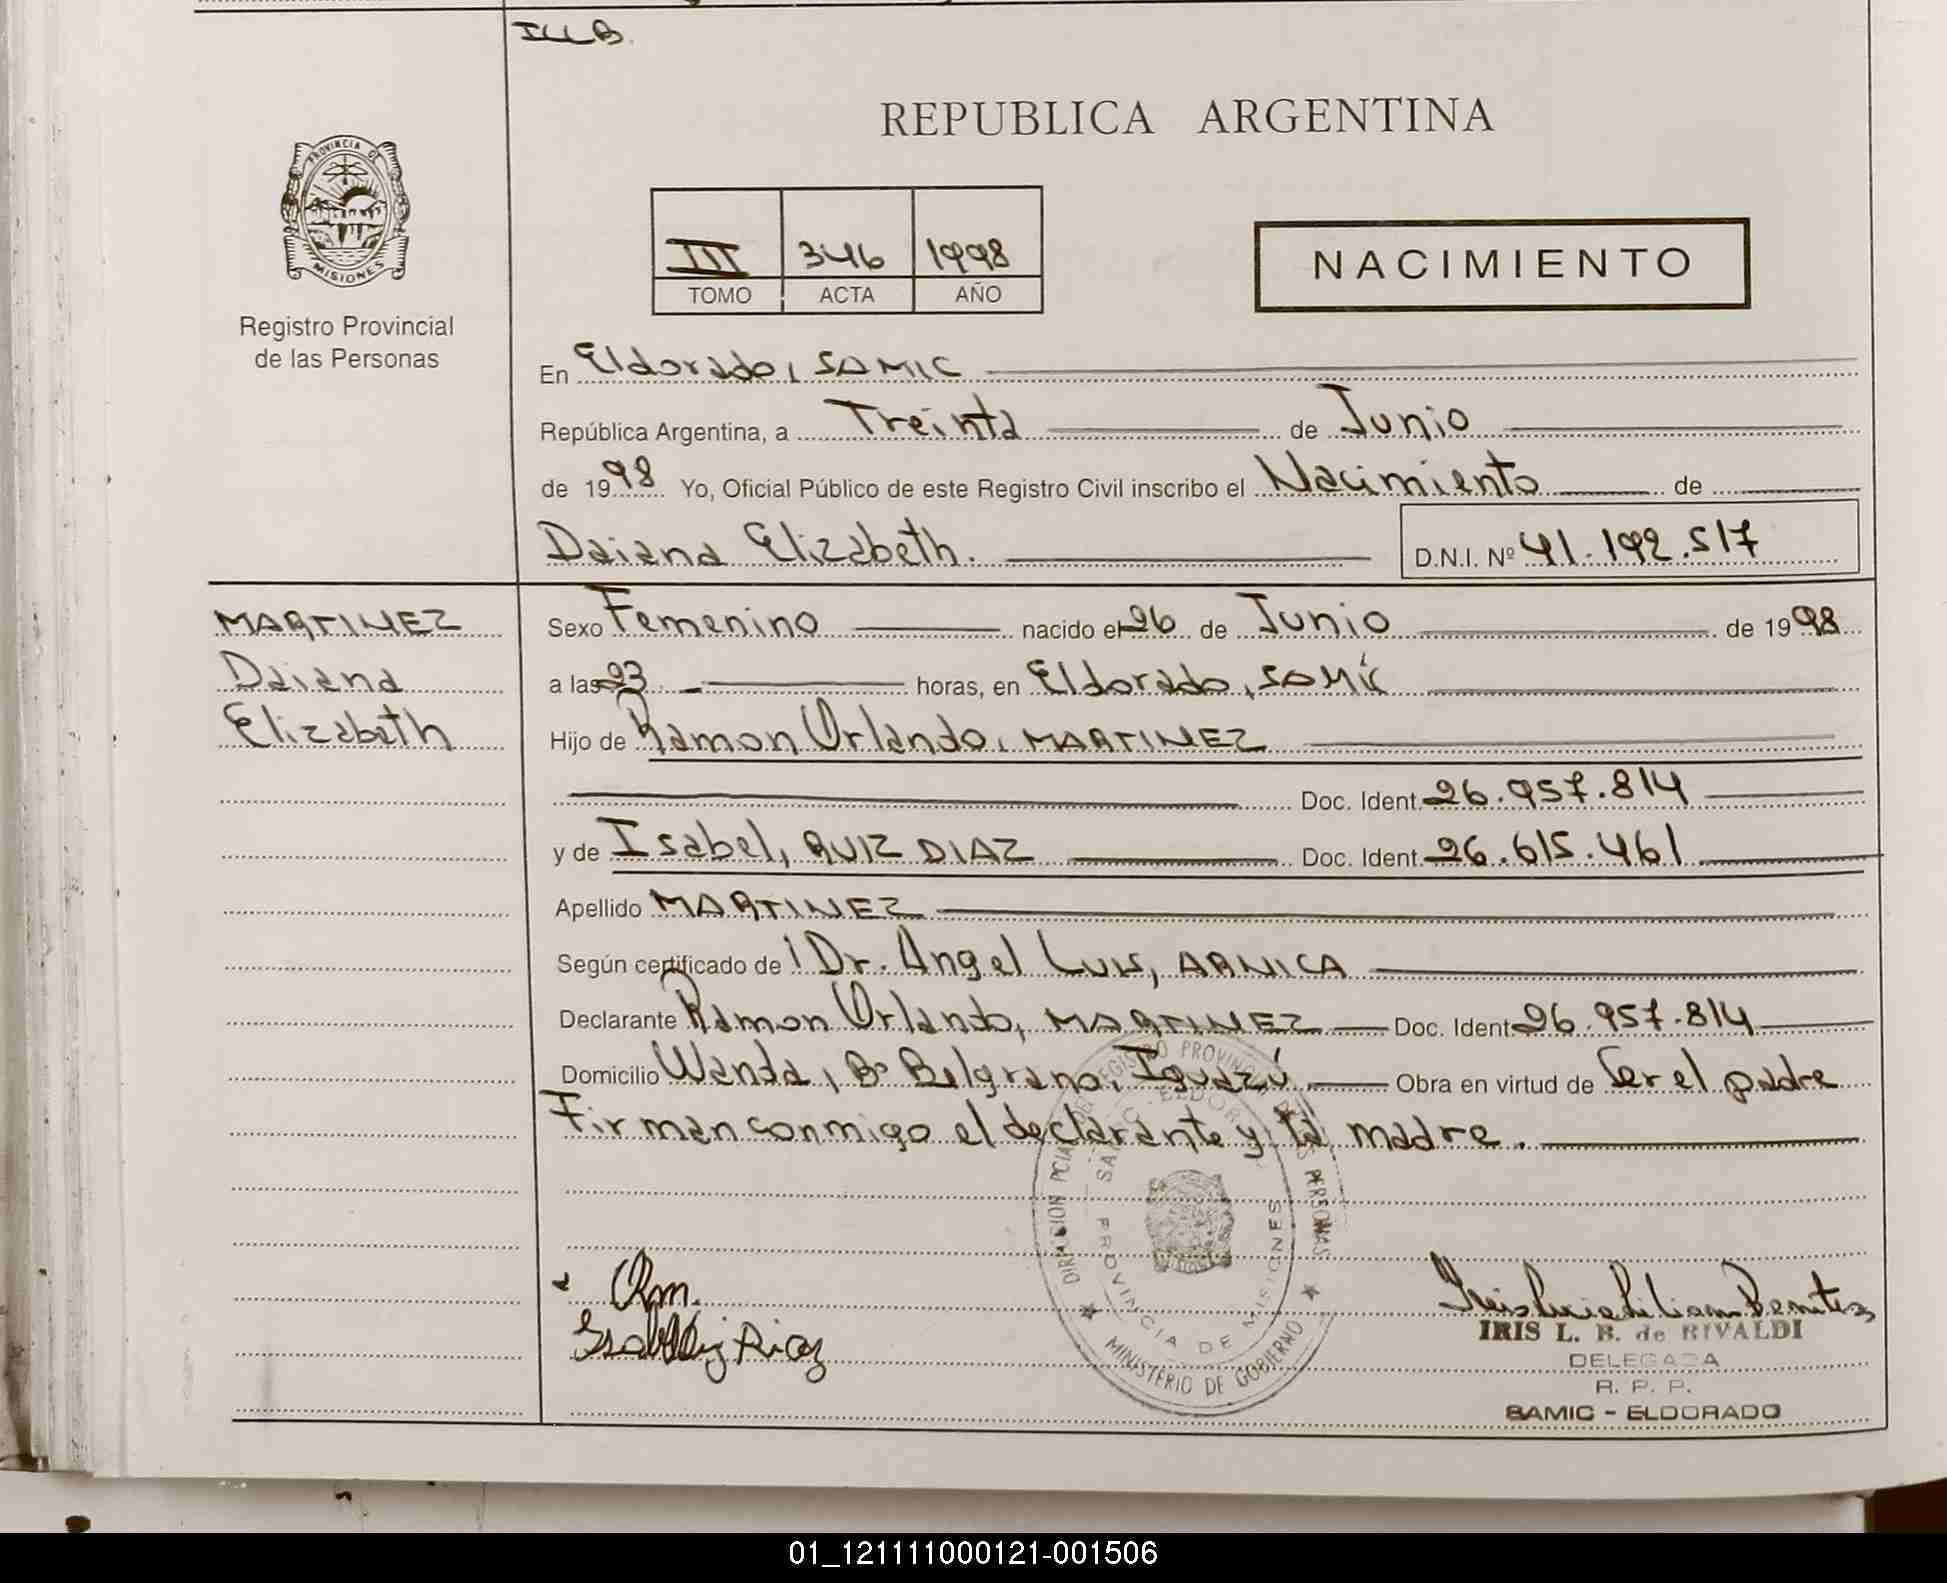 ILLB.
PROVINCIA DE
MISIONES
Registro Provincial
de las Personas
REPUBLICA ARGENTINA
III 346 1998
TOMO ACTA AÑO
NACIMIENTO
En Eldorado, SAMIC
República Argentina, a Treinta de Junio
de 1998 Yo, Oficial Público de este Registro Civil inscribo el Nacimiento de
Daiana Elizabeth. D.N.I. Nº 41.192.517
MARTINEZ
Daiana
Elizabeth
Sexo Femenino nacido el 26 de Junio de 1998
a las 23 horas, en Eldorado, SAMIC
Hijo de Ramon Orlando, MARTINEZ
Doc. Ident. 26.957.814
y de Isabel, RUIZ DIAZ Doc. Ident. 26.615.461
Apellido MARTINEZ
Según certificado de Dr. Angel Luis, ARNICA
Declarante Ramon Orlando, MARTINEZ Doc. Ident. 26.957.814
Domicilio Wanda, Bº Belgrano, Iguazú Obra en virtud de Ser el padre
Firman conmigo el declarante y la madre.
DIRECCION PCIAL DEL REGISTRO PROVINCIAL DE LAS PERSONAS
SAMIC - ELDORADO
PROVINCIA DE MISIONES
MINISTERIO DE GOBIERNO
IRIS L. B. de RIVALDI
DELEGADA
R. P. P.
SAMIC - ELDORADO
01_121111000121-001506